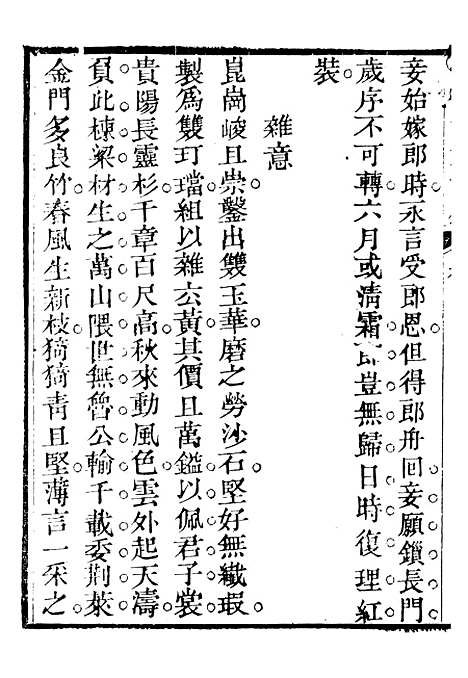 妾始嫁郎時永言受郎恩但得郎舟回妾願鎖長門。
歲序不可轉六月或清霜。郎豈無歸日時復理紅
裝。
雜意
崑崗峻且崇。鑿出雙玉華。磨之勞沙石。堅好無纖瑕。
製爲雙玎璫。組以雜玄黃。其價且萬鎰。以佩君子裳。
貴陽長靈杉。千章百尺高。秋來動風色。雲外起天濤。
負此棟梁材。生之萬山隈。世無魯公輸。千載委荆萊。
金門多良竹。春風生新枝。猗猗靑且堅。薄言一采之。